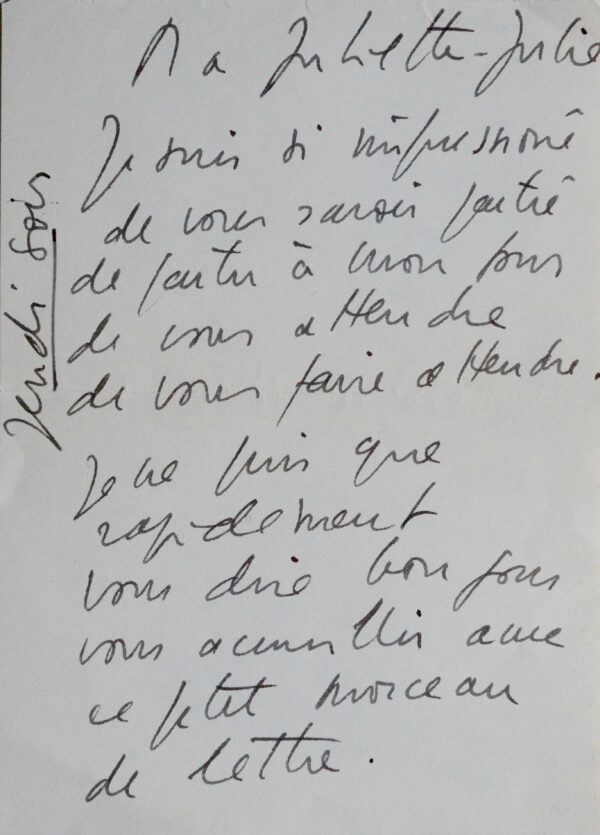 Ma Juliette-Julie
Jeudi soir
Je suis si impressioné
de vous savoir partie
de partir à mon tour
de vous attendre
de vous faire attendre.
Je ne puis que
rapidement
vous dire bonjour
vous accueillir avec
ce ptit morceau
de lettre.